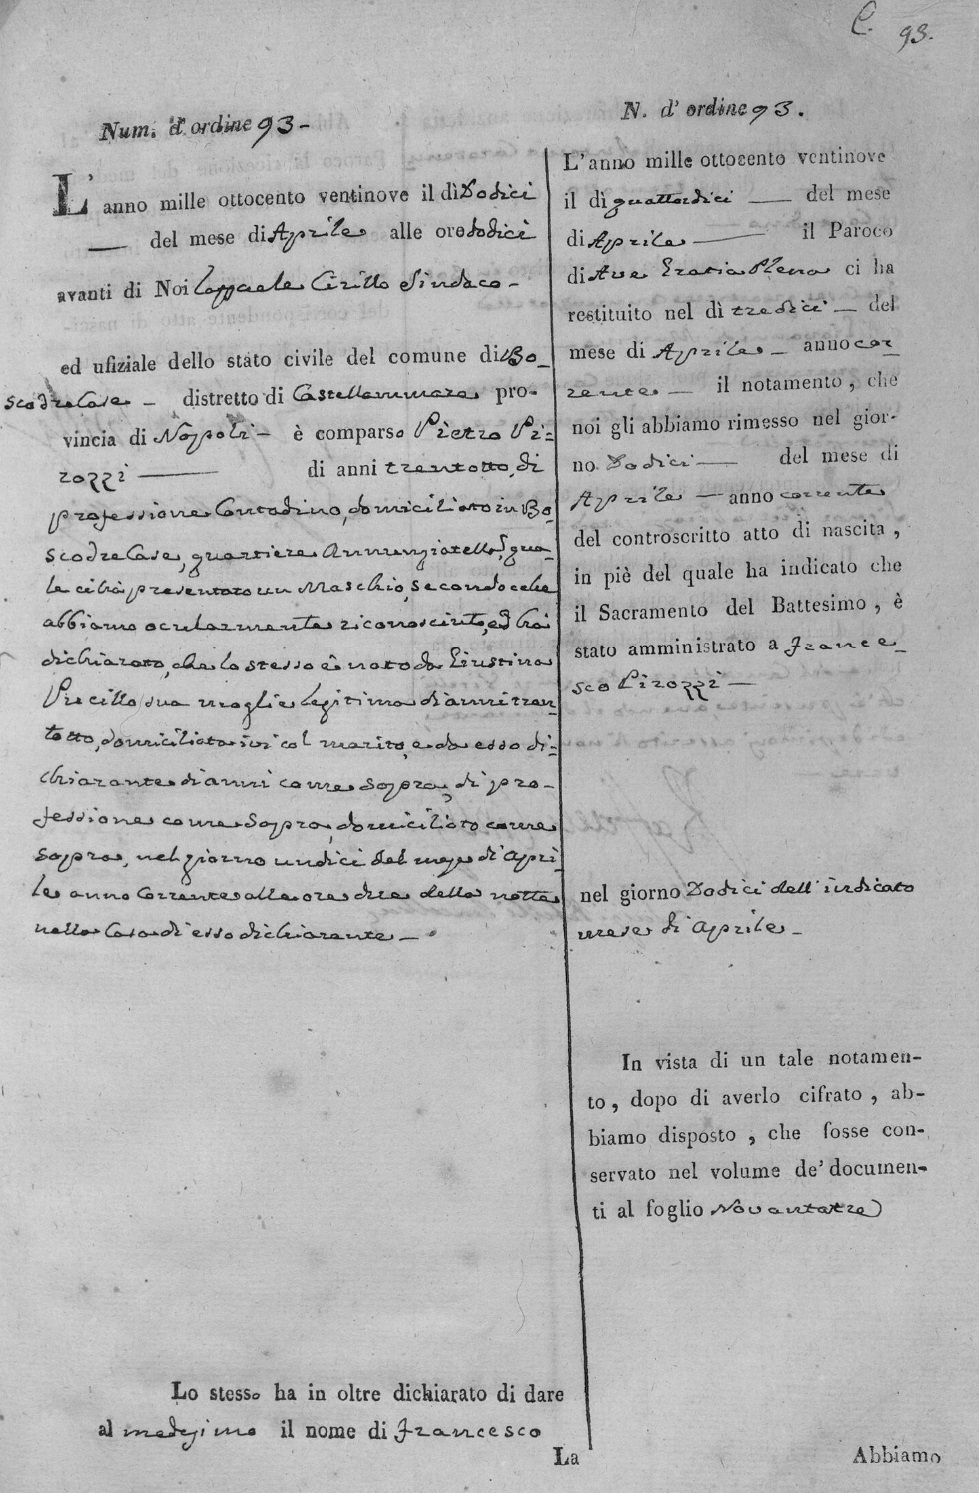 C. 93.
Num. d'ordine 93-
L'anno mille ottocento ventinove il dì Dodici
— del mese di Aprile alle ore dodici
avanti di Noi Raffaele Cirillo Sindaco -
ed ufiziale dello stato civile del comune di Bo_
scodreCase - distretto di Castellammare pro-
vincia di Napoli - è comparso Pietro Pi=
rozzi — di anni trentotto, di
professione Contadino, domiciliato in Bo
scodreCase, quartiere Annunziatella, qua_
le ci hà presentato un Maschio, secondo che
abbiamo ocularmente riconosciuto, ed hai
dichiarato, che lo stesso è nato da Giustina
Pucillo sua moglie legitima di anni tren_
totto, domiciliata ivi col marito, e da esso di=
chiarante di anni come sopra, di pro-
fessione come sopra, domiciliato come
sopra, nel giorno undici del mese di Apri_
le anno corrente alle ore due della notte
nella Casa di esso dichiarante -
Lo stesso ha in oltre dichiarato di dare
al medesimo il nome di Francesco
La
N. d'ordine 93.
L'anno mille ottocento ventinove
il dì quattordici — del mese
di Aprile — il Paroco
di Ave Gratia Plena ci ha
restituito nel dì tredici — del
mese di Aprile - anno cor_
rente — il notamento, che
noi gli abbiamo rimesso nel gior-
no Dodici — del mese di
Aprile — anno corrente
del controscritto atto di nascita,
in piè del quale ha indicato che
il Sacramento del Battesimo, è
stato amministrato a France_
sco Pirozzi —
nel giorno Dodici dell'indicato
mese di Aprile -
In vista di un tale notamen-
to, dopo di averlo cifrato, ab-
biamo disposto, che fosse con-
servato nel volume de' documen-
ti al foglio Novantatre
Abbiamo